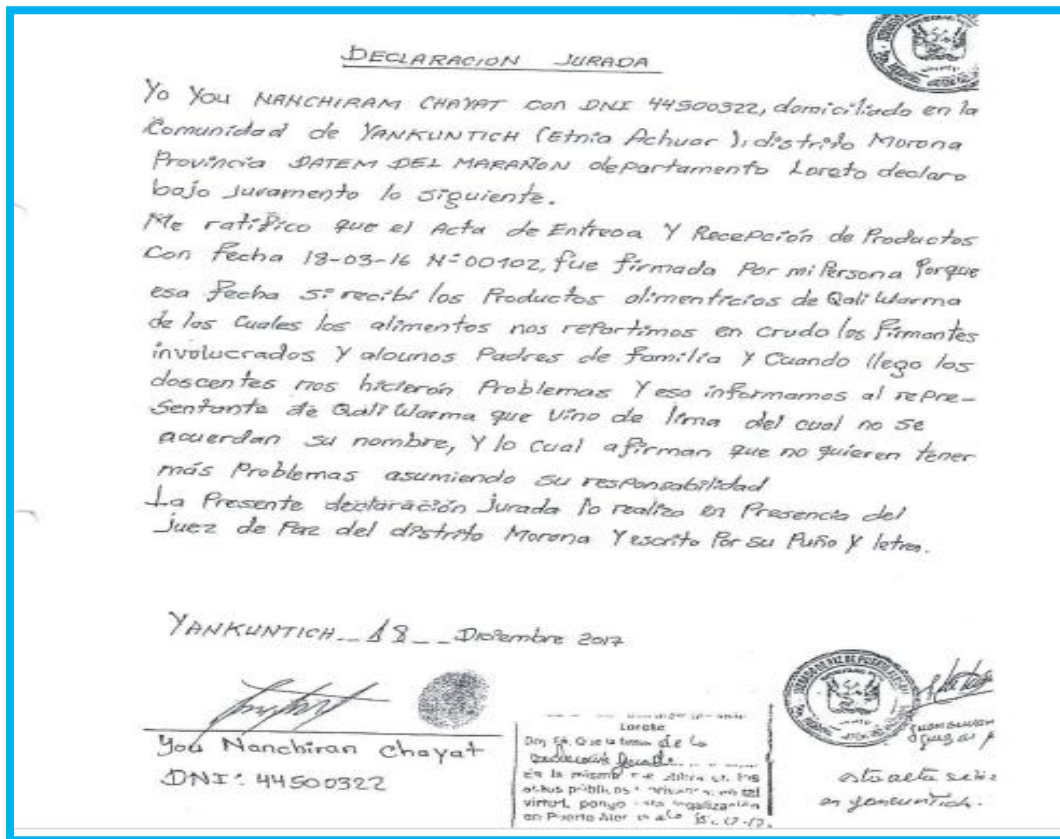 DECLARACION JURADA
Yo You NANCHIRAM CHAYAT con DNI 44500322, domiciliado en la
Comunidad de YANKUNTICH (Etnia Achuar), distrito Morona
Provincia DATEM DEL MARAÑON departamento Loreto declaro
bajo Juramento lo siguiente.
Me ratifico que el Acta de Entrega Y Recepción de Productos
Con fecha 18-03-16 N=00102, fue firmada Por mi Persona Porque
esa fecha si recibí los Productos alimenticios de Qali Warma
de los Cuales los alimentos nos repartimos en crudo los firmantes
involucrados Y algunos Padres de familia Y Cuando llego los
doscentes nos hicierón Problemas Y eso informamos al repre-
sentante de Qali Warma que Vino de lima del cual no se
acuerdan su nombre, Y lo cual afirman que no quieren tener
más Problemas asumiendo su responsabilidad
La Presente declaración Jurada lo realizo en Presencia del
Juez de Paz del distrito Morona Y escrito Por su Puño Y letra.
YANKUNTICH 18 Diciembre 2017
You Nanchiran Chayat
DNI: 44500322
Loreto
de la
en yankuntich.